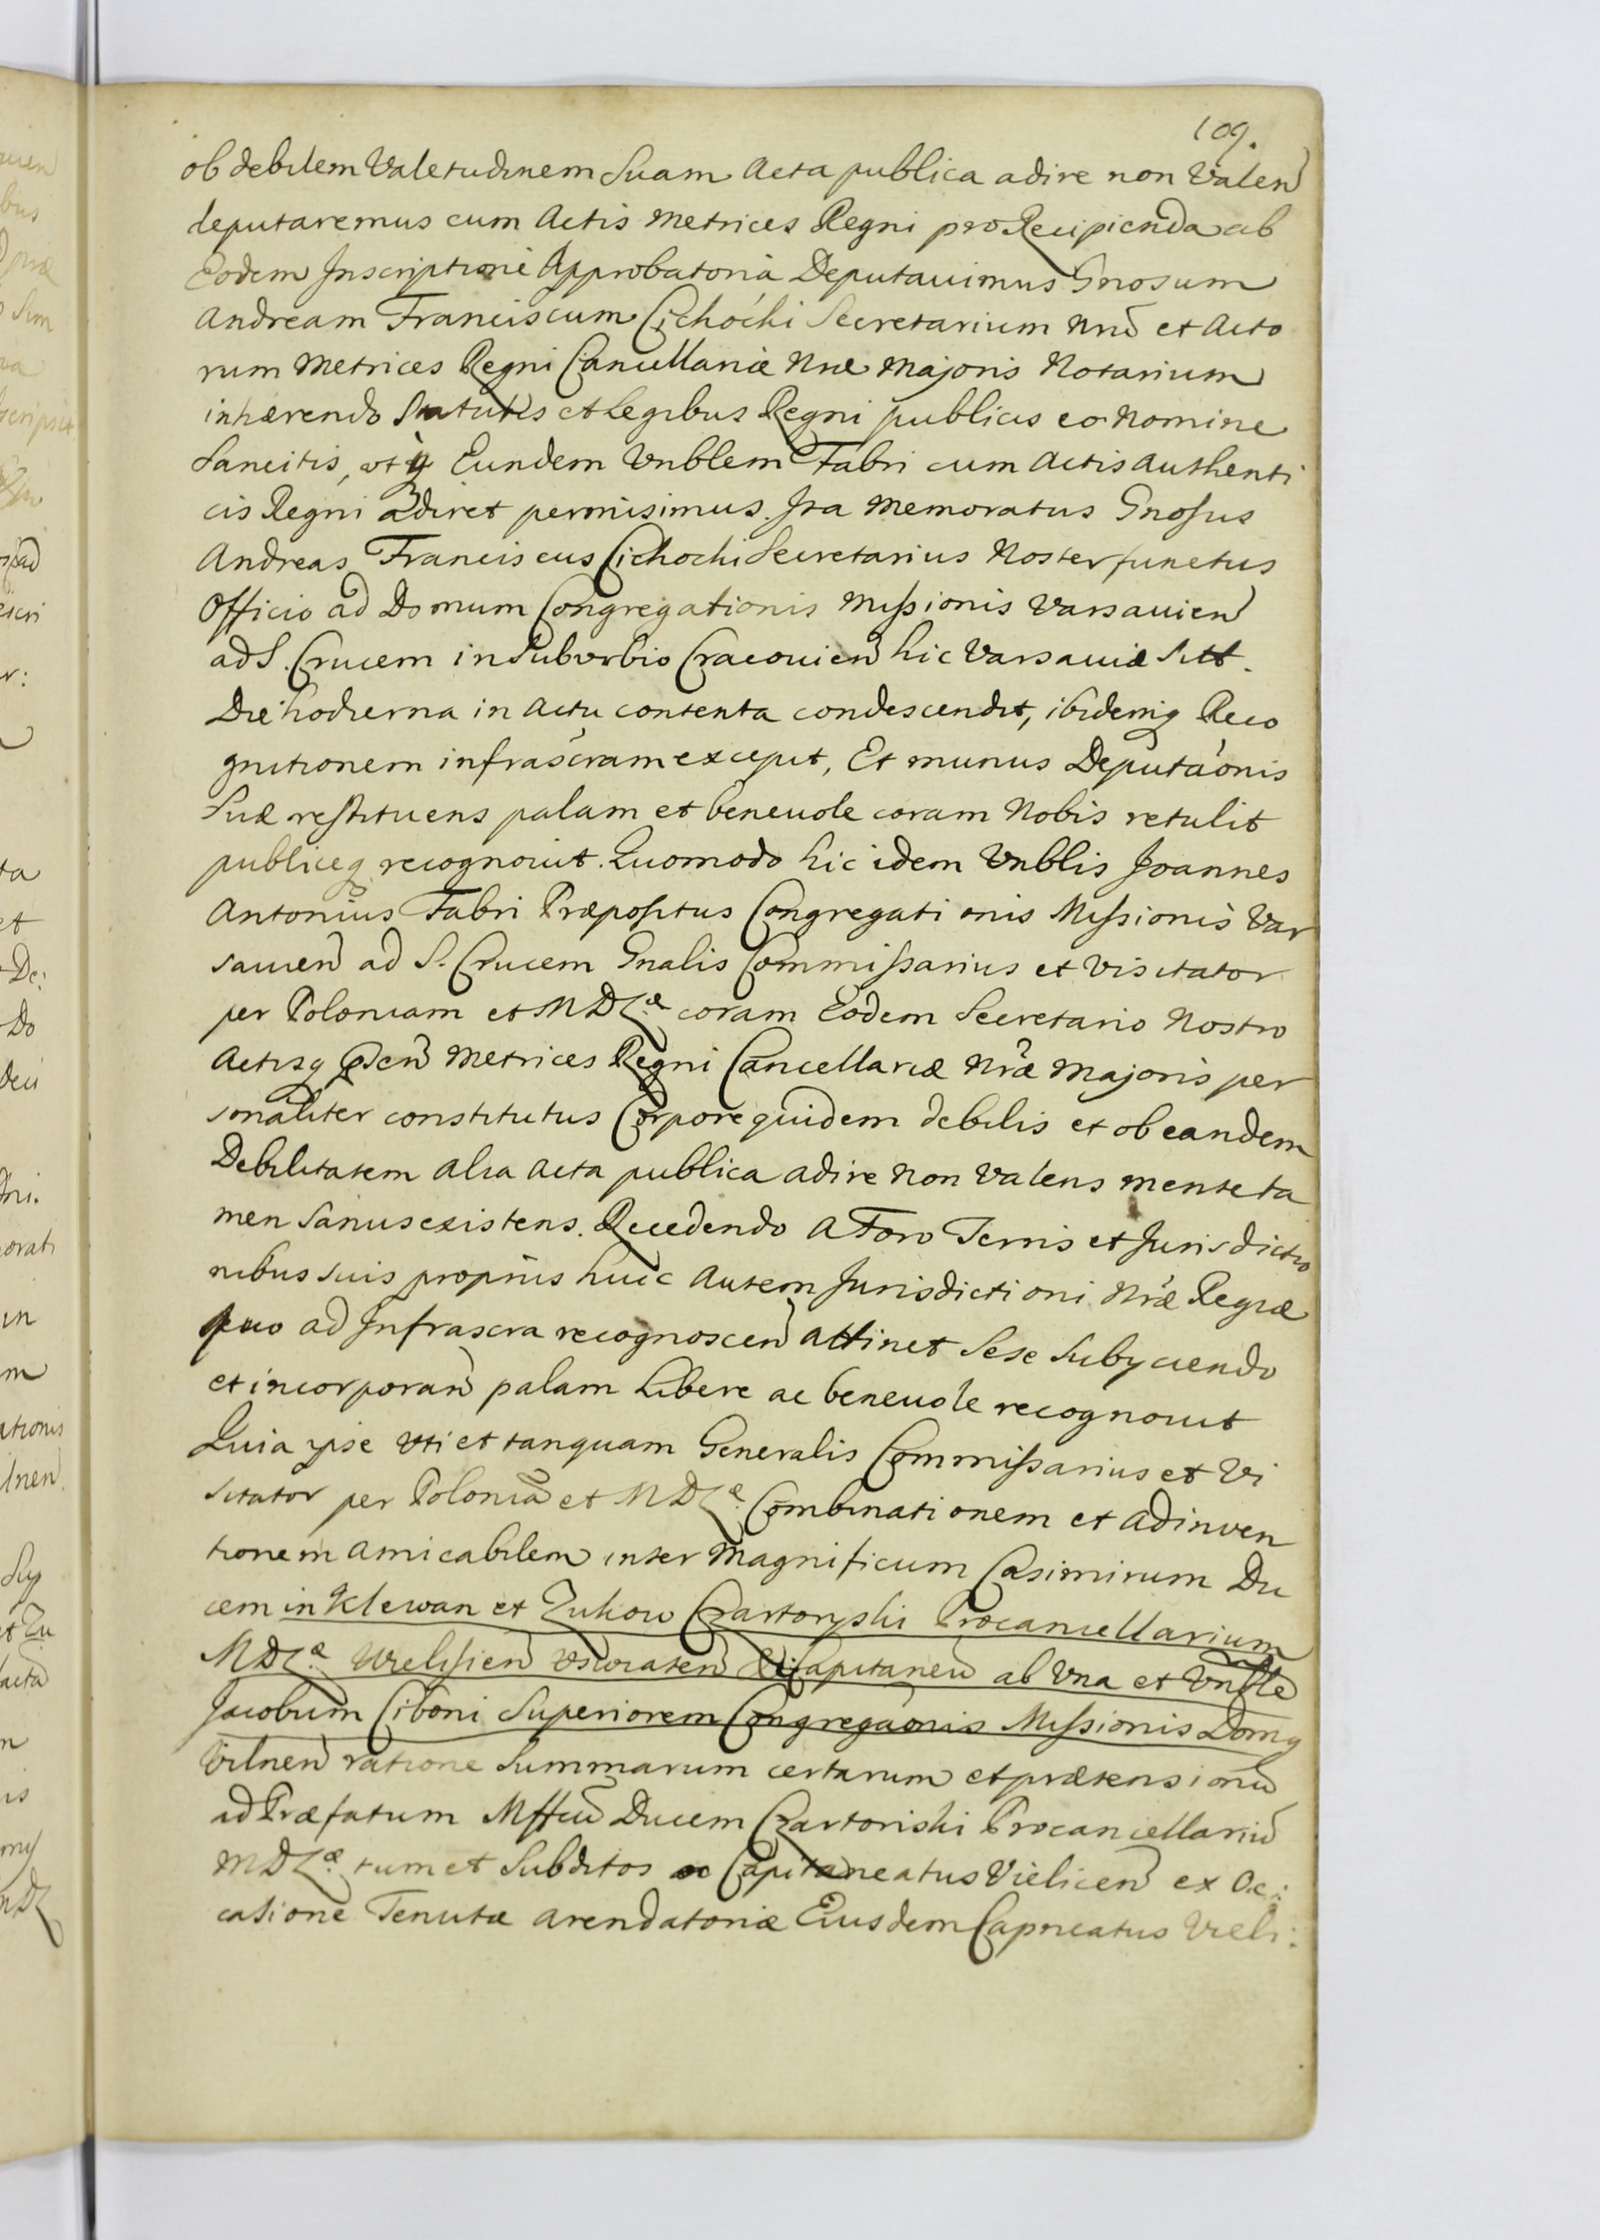 109.
ob debilem Valetudinem Suam Acta publica adire non Valen
deputaremus cum Actis Metrices Regni pro Recipienda ab
Eodem Inscriptione Approbatoria Deputauimus Gnosum
Andream Franciscum Cichocki Secretarium Nrũ et Acto
rum Metrices Regni Cancellariæ Nræ Majoris Notarium
inhærendo Statutis et Legibus Regni publicis eo Nomine
Sancitis, vt Eundem Vnblem Fabri cum Actis Authenti
cis Regni adiret permisimus. Ita Memoratus Gnosus
Andreas Franciscus Cichocki Secretarius Noster functus
Officio ad Domum Congregationis Missionis Varsauien
ad S. Crucem in Suburbio Cracouien hic Varsauiæ Sitt.
Die hodierna in Actu contenta condescendit, ibidemq Reco
gnitionem infrascram excepit, Et munus Deputaonis
Suæ restituens palam et beneuole coram Nobis retulit
publiceq recognouit. Quomodo hic idem Vnblis Joannes
Antonius Fabri Præpositus Congregationis Missionis Var
sauien ad S. Crucem Gnalis Commissarius et Visitator
per Poloniam et MDL.æ coram Eodem Secretario Nostro
Actisq pñ Metrices Regni Cancellariæ Nræ Majoris per
sonaliter constitutus Corpore quidem debilis et ob eandem
Debilitatem alia Acta publica adire Non Valens mente ta
men Sanus existens. Recedendo A Foro Terris et Jurisdictio
nibus suis proprijs huic Autem Jurisdictioni Nræ Regiæ
quo ad Infrascra recognoscen attinet Sese Subyciendo
et incorporan palam Libere ac beneuole recognouit
Quia ipse vti et tanquam Generalis Commissarius et Vi
sitator per Poloniã et MDL.æ Combinationem et adinven
tionem amicabilem inter Magnificum Casimirum Du
cem in Klewan et Zukow Czartoryski Procancellarium
MDL.æ Vielisien Vsuiaten Capitaneũ ab Vna et Vnble
Jacobum Ciboni Superiorem Congregaonis Missionis Domq
Vilnen ratione Summarum certarum et prætensionũ
ad Præfatum Mffcũ Ducem Czartoriski Procancellariũ
MDL.æ tum et Subditos ac Capitaneatus Vielicen ex Oc:
casione Tenutæ arendatoriæ Eiusdem Capneatus Vieli: